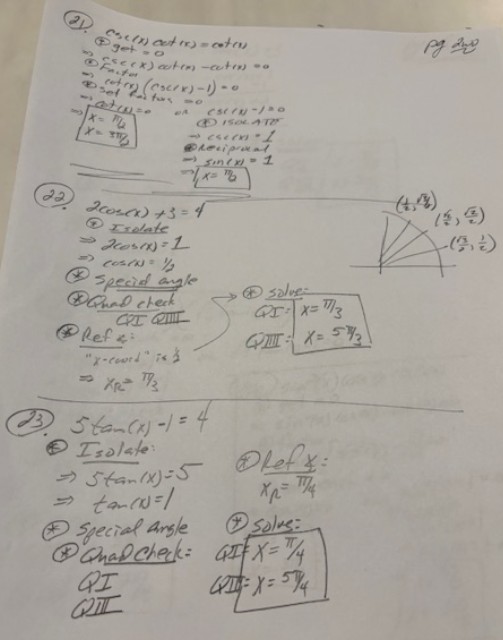 pg 240
21.
csc(x) cot(x) = cot(x)
⊛ get = 0
⇒ csc(x) cot(x) - cot(x) = 0
⊛ Factor
⇒ cot(x) (csc(x) - 1) = 0
⊛ Set Factors = 0
⇒ cot(x) = 0 or csc(x) - 1 = 0
⇒ x = π/2
x = 3π/2
⊛ ISOLATE
⇒ csc(x) = 1
⊛ Reciprocal
⇒ sin(x) = 1
⇒ x = π/2
22.
2cos(x) + 3 = 4
⊛ Isolate
⇒ 2cos(x) = 1
⇒ cos(x) = 1/2
⊛ Special angle
⊛ Quad check
QI QIII
⊛ Ref ∡:
"x-coord" is 1/2
⇒ xR = π/3
⊛ solve:
QI: x = π/3
QIII: x = 5π/3
(1/2, √3/2)
(√2/2, √2/2)
(√3/2, 1/2)
23.
5tan(x) - 1 = 4
⊛ Isolate:
⇒ 5tan(x) = 5
⇒ tan(x) = 1
⊛ Special Angle
⊛ Quad check:
QI
QIII
⊛ Ref ∡:
xR = π/4
⊛ solve:
QI: x = π/4
QIII: x = 5π/4